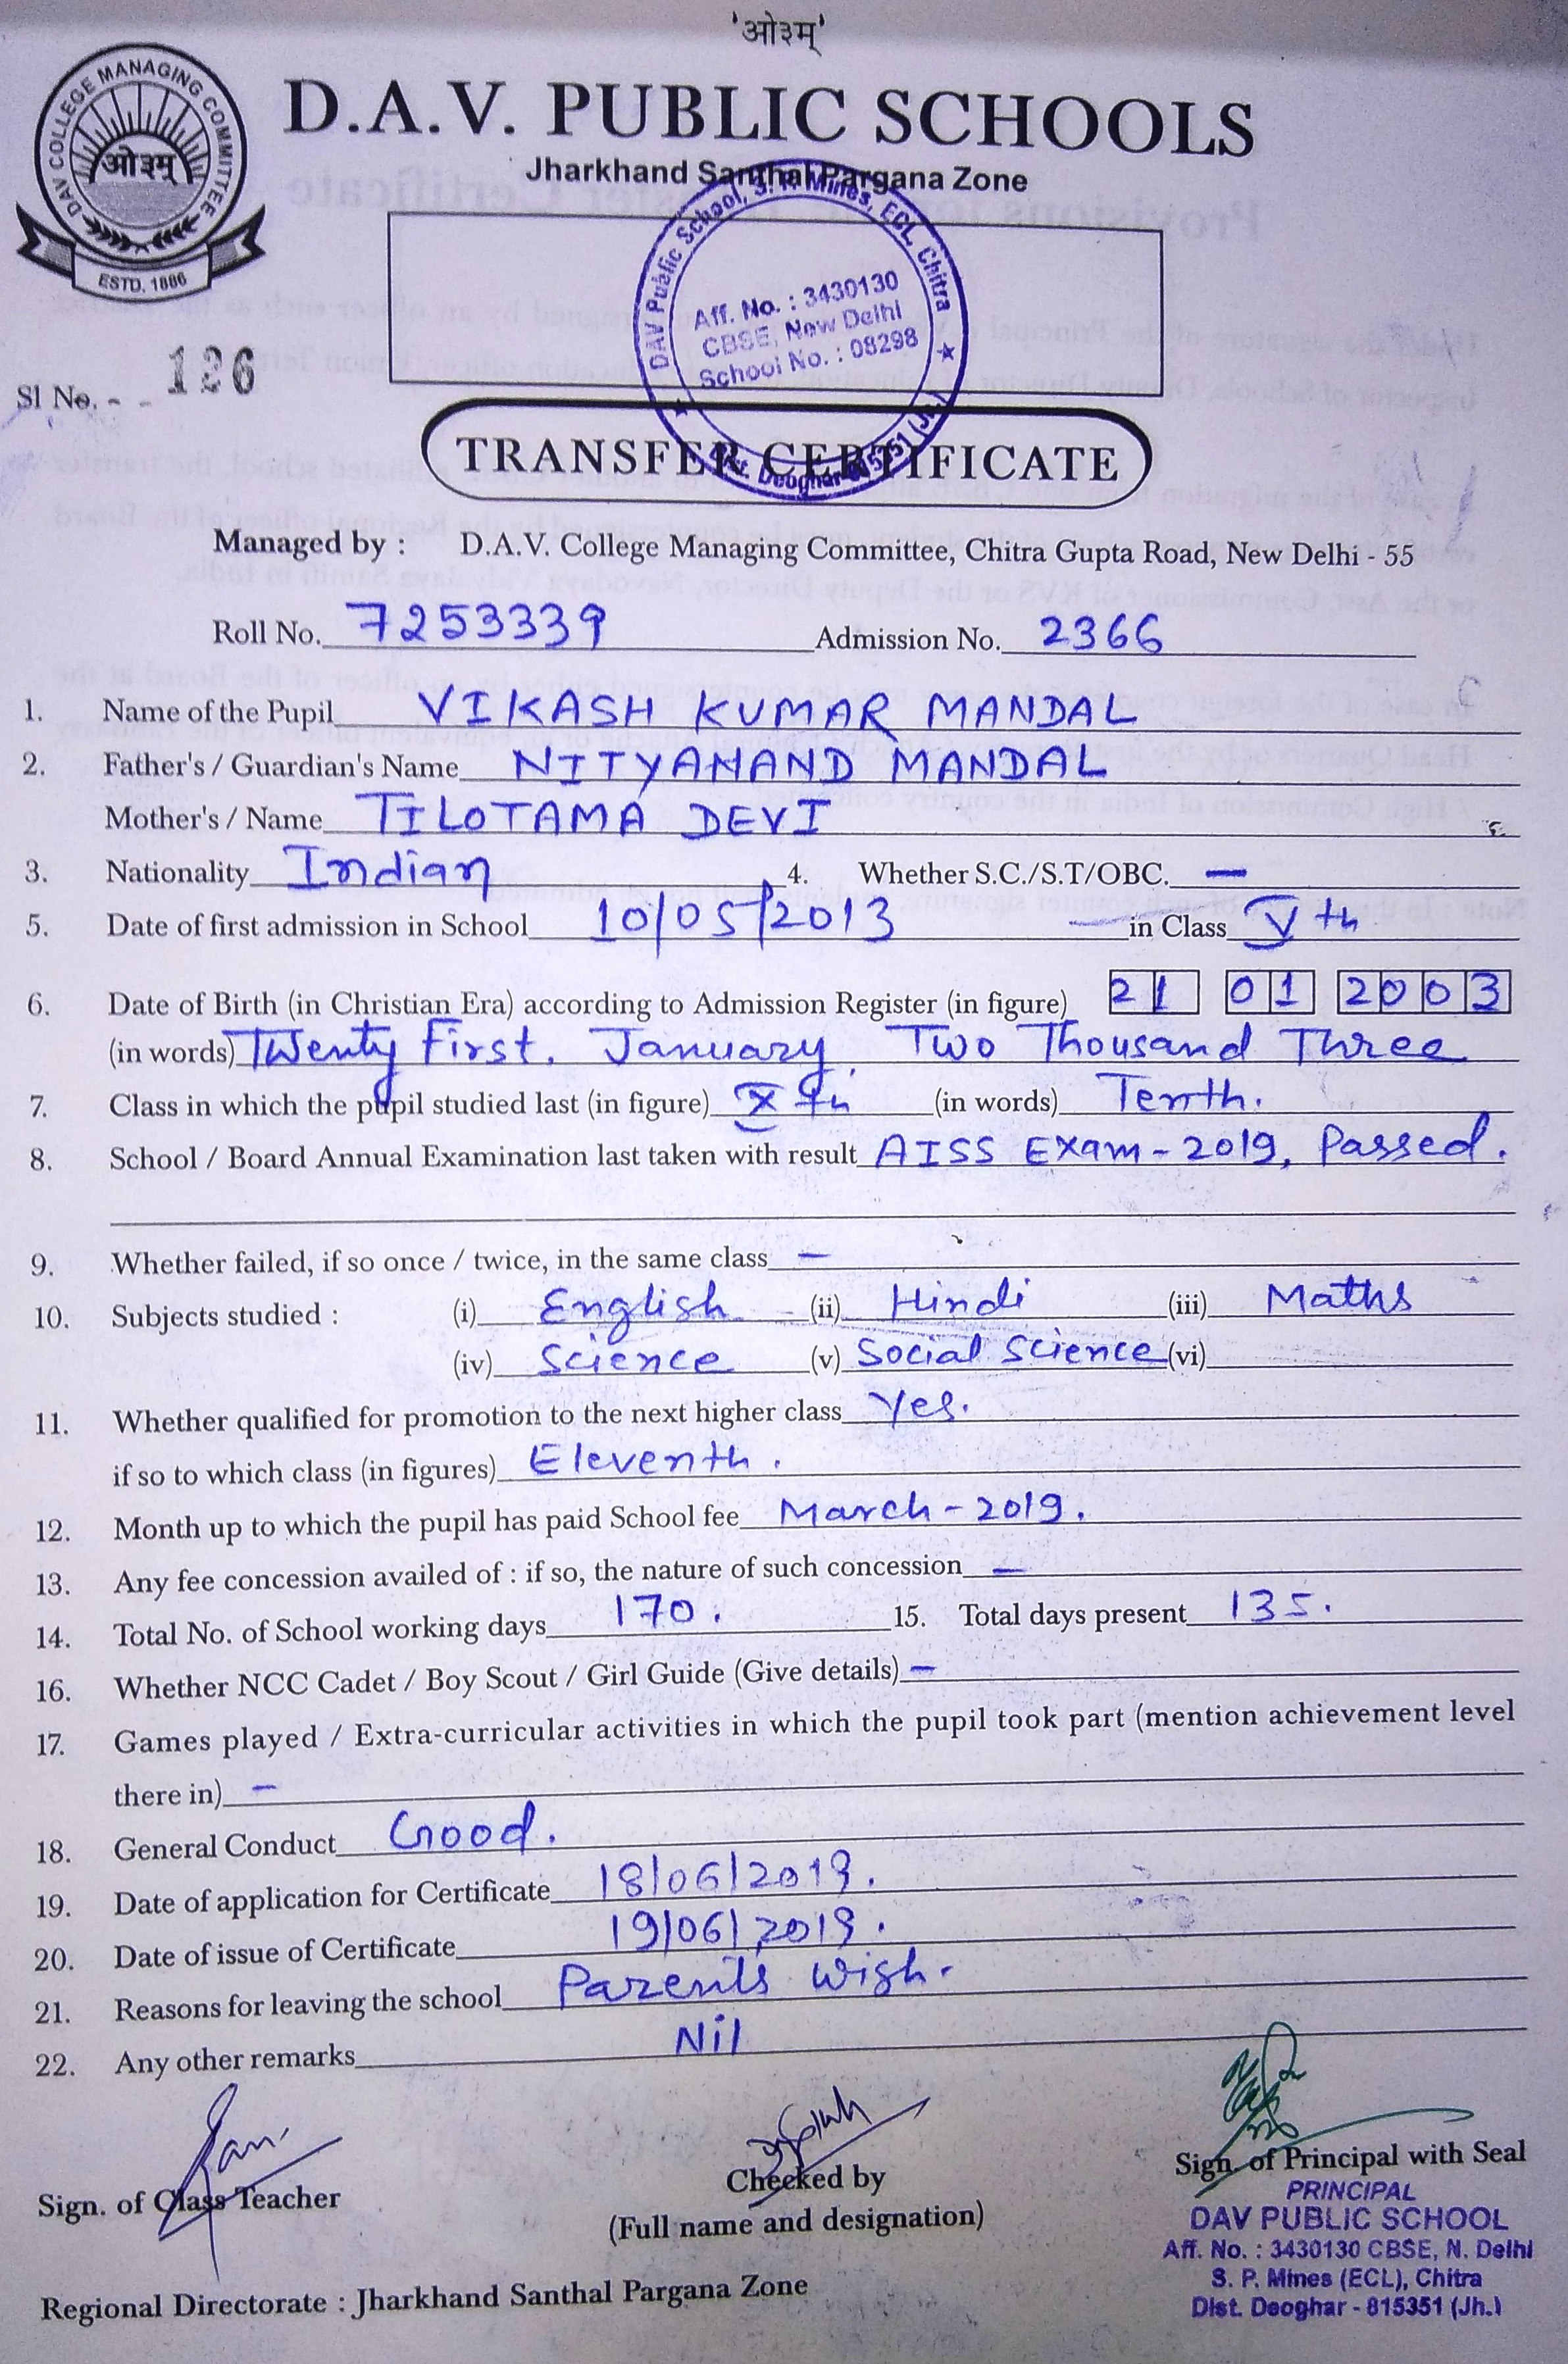 'ओ३म्'
DAV COLLEGE MANAGING COMMITTEE
ओ३म्
ESTD. 1886
D.A.V. PUBLIC SCHOOLS
Jharkhand Santhal Pargana Zone
DAV Public School, S. P. Mines, ECL, Chitra
Aff. No. : 3430130
CBSE, New Delhi
School No. : 08298
Dist. Deoghar-815351 (Jh.)
Sl No. 126
TRANSFER CERTIFICATE
Managed by : D.A.V. College Managing Committee, Chitra Gupta Road, New Delhi - 55
Roll No. 7253339 Admission No. 2366
1. Name of the Pupil VIKASH KUMAR MANDAL
2. Father's / Guardian's Name NITYANAND MANDAL
Mother's / Name TILOTAMA DEVI
3. Nationality Indian 4. Whether S.C./S.T/OBC. —
5. Date of first admission in School 10/05/2013 in Class Vth
6. Date of Birth (in Christian Era) according to Admission Register (in figure) 21 01 2003
(in words) Twenty First, January, Two Thousand Three
7. Class in which the pupil studied last (in figure) Xth (in words) Tenth.
8. School / Board Annual Examination last taken with result AISS Exam - 2019, Passed.
9. Whether failed, if so once / twice, in the same class —
10. Subjects studied : (i) English (ii) Hindi (iii) Maths
(iv) Science (v) Social Science (vi)
11. Whether qualified for promotion to the next higher class Yes.
if so to which class (in figures) Eleventh.
12. Month up to which the pupil has paid School fee March - 2019.
13. Any fee concession availed of : if so, the nature of such concession —
14. Total No. of School working days 170. 15. Total days present 135.
16. Whether NCC Cadet / Boy Scout / Girl Guide (Give details) —
17. Games played / Extra-curricular activities in which the pupil took part (mention achievement level
there in) —
18. General Conduct Good.
19. Date of application for Certificate 18/06/2019.
20. Date of issue of Certificate 19/06/2019.
21. Reasons for leaving the school Parents Wish.
22. Any other remarks Nil
Sign. of Class Teacher
Checked by
(Full name and designation)
Sign. of Principal with Seal
PRINCIPAL
DAV PUBLIC SCHOOL
Aff. No. : 3430130 CBSE, N. Delhi
S. P. Mines (ECL), Chitra
Dist. Deoghar - 815351 (Jh.)
Regional Directorate : Jharkhand Santhal Pargana Zone